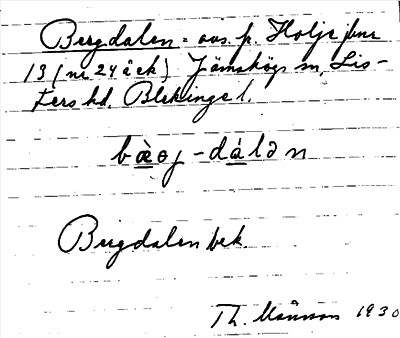 Bergdalen = avs. p. Holje fvue
13 (nr 24 å ek) Jämshögs sn, Lis-
ters hd, Blekinge l.
bæ̀ɵȷ - dálən
Bergdalen bek.
Th. Månsson 1930